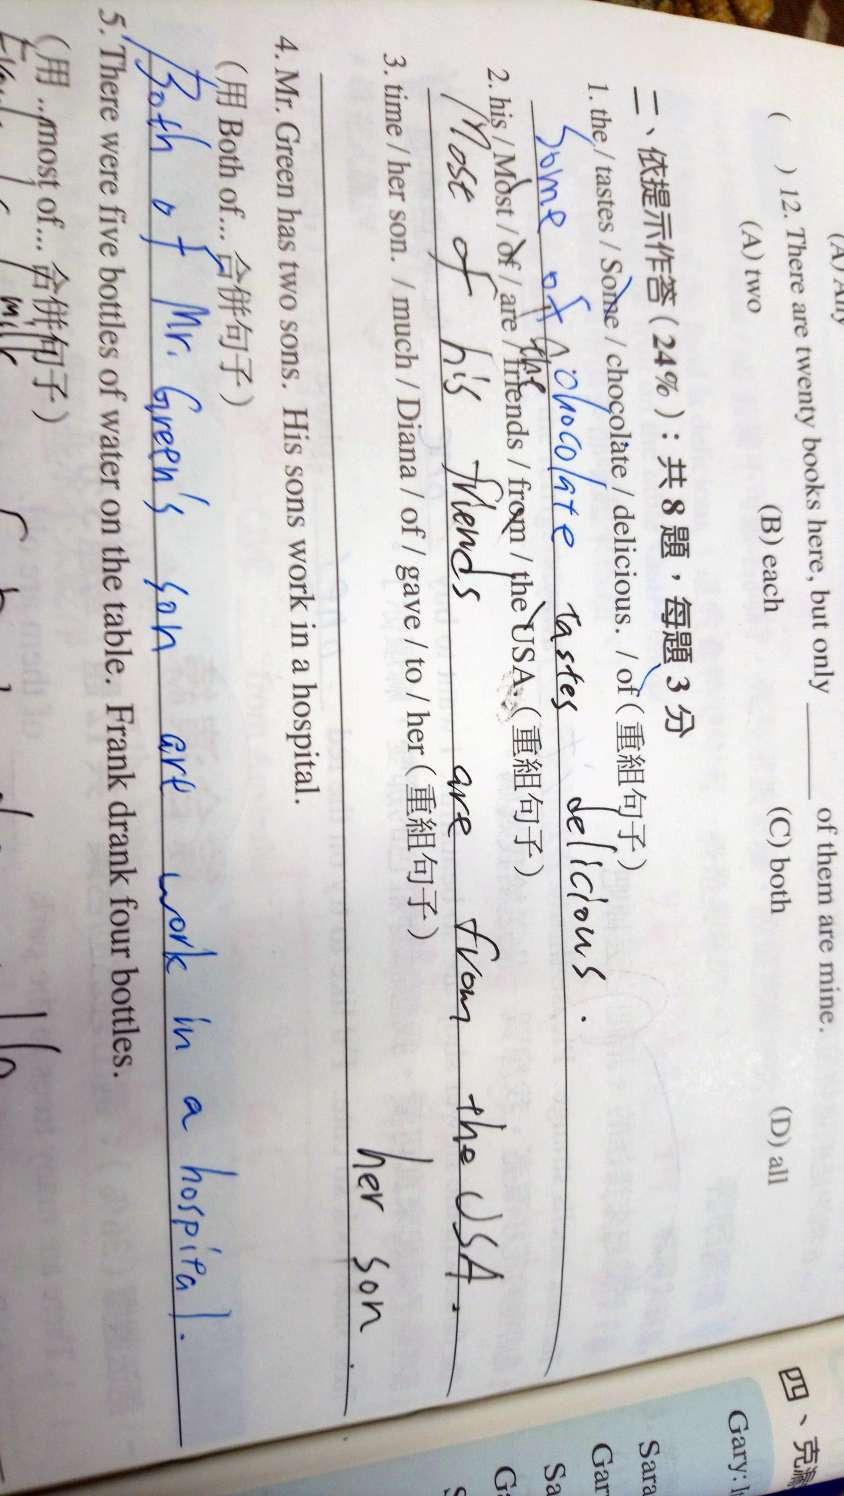 (A) Any
( ) 12. There are twenty books here, but only ______ of them are mine.
(A) two (B) each (C) both (D) all
二、依提示作答(24%):共 8 題,每題 3 分
1. the / tastes / Some / chocolate / delicious. / of (重組句子)
Some of the chocolate tastes delicious.
2. his / Most / of / are / friends / from / the USA. (重組句子)
Most of his friends are from the USA.
3. time / her son. / much / Diana / of / gave / to / her (重組句子)
her son.
4. Mr. Green has two sons. His sons work in a hospital.
(用 Both of... 合併句子)
Both of Mr. Green's son are work in a hospital.
5. There were five bottles of water on the table. Frank drank four bottles.
(用 ...most of... 合併句子)
milk
四、克
Gary:
Sara
Gar
Sa
Ga